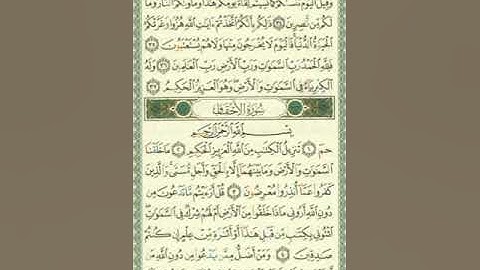 وَقِيلَ ٱلْيَوْمَ نَنسَىٰكُمْ كَمَا نَسِيتُمْ لِقَآءَ يَوْمِكُمْ هَٰذَا وَمَأْوَىٰكُمُ ٱلنَّارُ وَمَا
لَكُم مِّن نَّٰصِرِينَ ٣٤ ذَٰلِكُم بِأَنَّكُمُ ٱتَّخَذْتُمْ ءَايَٰتِ ٱللَّهِ هُزُوًا وَغَرَّتْكُمُ
ٱلْحَيَوٰةُ ٱلدُّنْيَا فَٱلْيَوْمَ لَا يُخْرَجُونَ مِنْهَا وَلَا هُمْ يُسْتَعْتَبُونَ ٣٥
فَلِلَّهِ ٱلْحَمْدُ رَبِّ ٱلسَّمَٰوَٰتِ وَرَبِّ ٱلْأَرْضِ رَبِّ ٱلْعَٰلَمِينَ ٣٦ وَلَهُ
ٱلْكِبْرِيَآءُ فِى ٱلسَّمَٰوَٰتِ وَٱلْأَرْضِ وَهُوَ ٱلْعَزِيزُ ٱلْحَكِيمُ ٣٧
سُورَةُ ٱلْأَحْقَافِ
بِسْمِ ٱللَّهِ ٱلرَّحْمَٰنِ ٱلرَّحِيمِ
حمٓ ١ تَنزِيلُ ٱلْكِتَٰبِ مِنَ ٱللَّهِ ٱلْعَزِيزِ ٱلْحَكِيمِ ٢ مَا خَلَقْنَا
ٱلسَّمَٰوَٰتِ وَٱلْأَرْضَ وَمَا بَيْنَهُمَآ إِلَّا بِٱلْحَقِّ وَأَجَلٍ مُّسَمًّى وَٱلَّذِينَ
كَفَرُوا۟ عَمَّآ أُنذِرُوا۟ مُعْرِضُونَ ٣ قُلْ أَرَءَيْتُم مَّا تَدْعُونَ مِن
دُونِ ٱللَّهِ أَرُونِى مَاذَا خَلَقُوا۟ مِنَ ٱلْأَرْضِ أَمْ لَهُمْ شِرْكٌ فِى ٱلسَّمَٰوَٰتِ
ٱئْتُونِى بِكِتَٰبٍ مِّن قَبْلِ هَٰذَآ أَوْ أَثَٰرَةٍ مِّنْ عِلْمٍ إِن كُنتُمْ
صَٰدِقِينَ ٤ وَمَنْ أَضَلُّ مِمَّن يَدْعُوا۟ مِن دُونِ ٱللَّهِ مَن